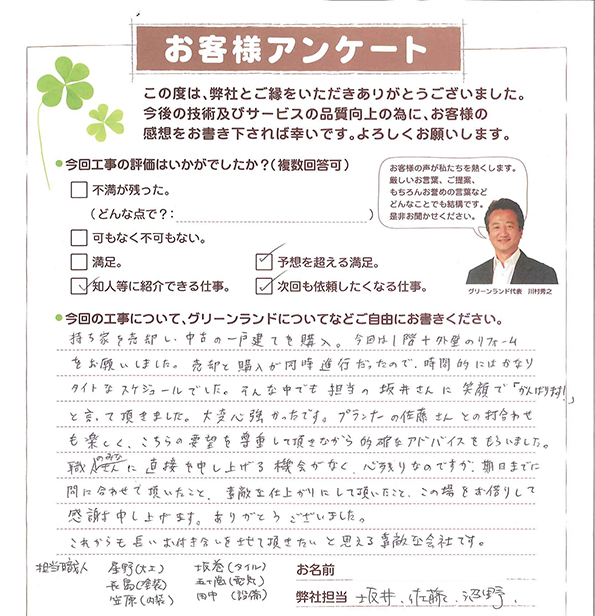 お客様アンケート
この度は、弊社とご縁をいただきありがとうございました。
今後の技術及びサービスの品質向上の為に、お客様の
感想をお書き下されば幸いです。よろしくお願いします。
今回工事の評価はいかがでしたか？（複数回答可）
不満が残った。
（どんな点で？：　　　）
可もなく不可もない。
満足。
予想を超える満足。
知人等に紹介できる仕事。
次回も依頼したくなる仕事。
お客様の声が私たちを熱くします。
厳しいお言葉、ご提案、
もちろんお誉めの言葉など
どんなことでも結構です。
是非お聞かせください。
グリーンランド代表　川村秀之
今回の工事について、グリーンランドについてなどご自由にお書きください。
持ち家を売却し、中古の一戸建てを購入。今回は1階+外壁のリフォーム
をお願いしました。売却と購入が同時進行だったので、時間的にはかなり
タイトなスケジュールでした。そんな中でも担当の坂井さんに笑顔で「がんばります!」
と言って頂きました。大変心強かったです。プランナーの佐藤さんとの打合わせ
も楽しく、こちらの要望を尊重して頂きながら的確なアドバイスをもらいました。
職人のみなさんに直接を申し上げる機会がなく、心残りなのですが、期日までに
間に合わせて頂いたこと、素敵な仕上がりにして頂いたこと、この場をお借りして
感謝申し上げます。ありがとうございました。
これからも長いお付き合いをさせて頂きたいと思える素敵な会社です。
担当職人　星野(大工)　坂巻(タイル)
長島(塗装)　五十嵐(電気)
笠原(内装)　田中(設備)
お名前
弊社担当　坂井、佐藤、沼野、